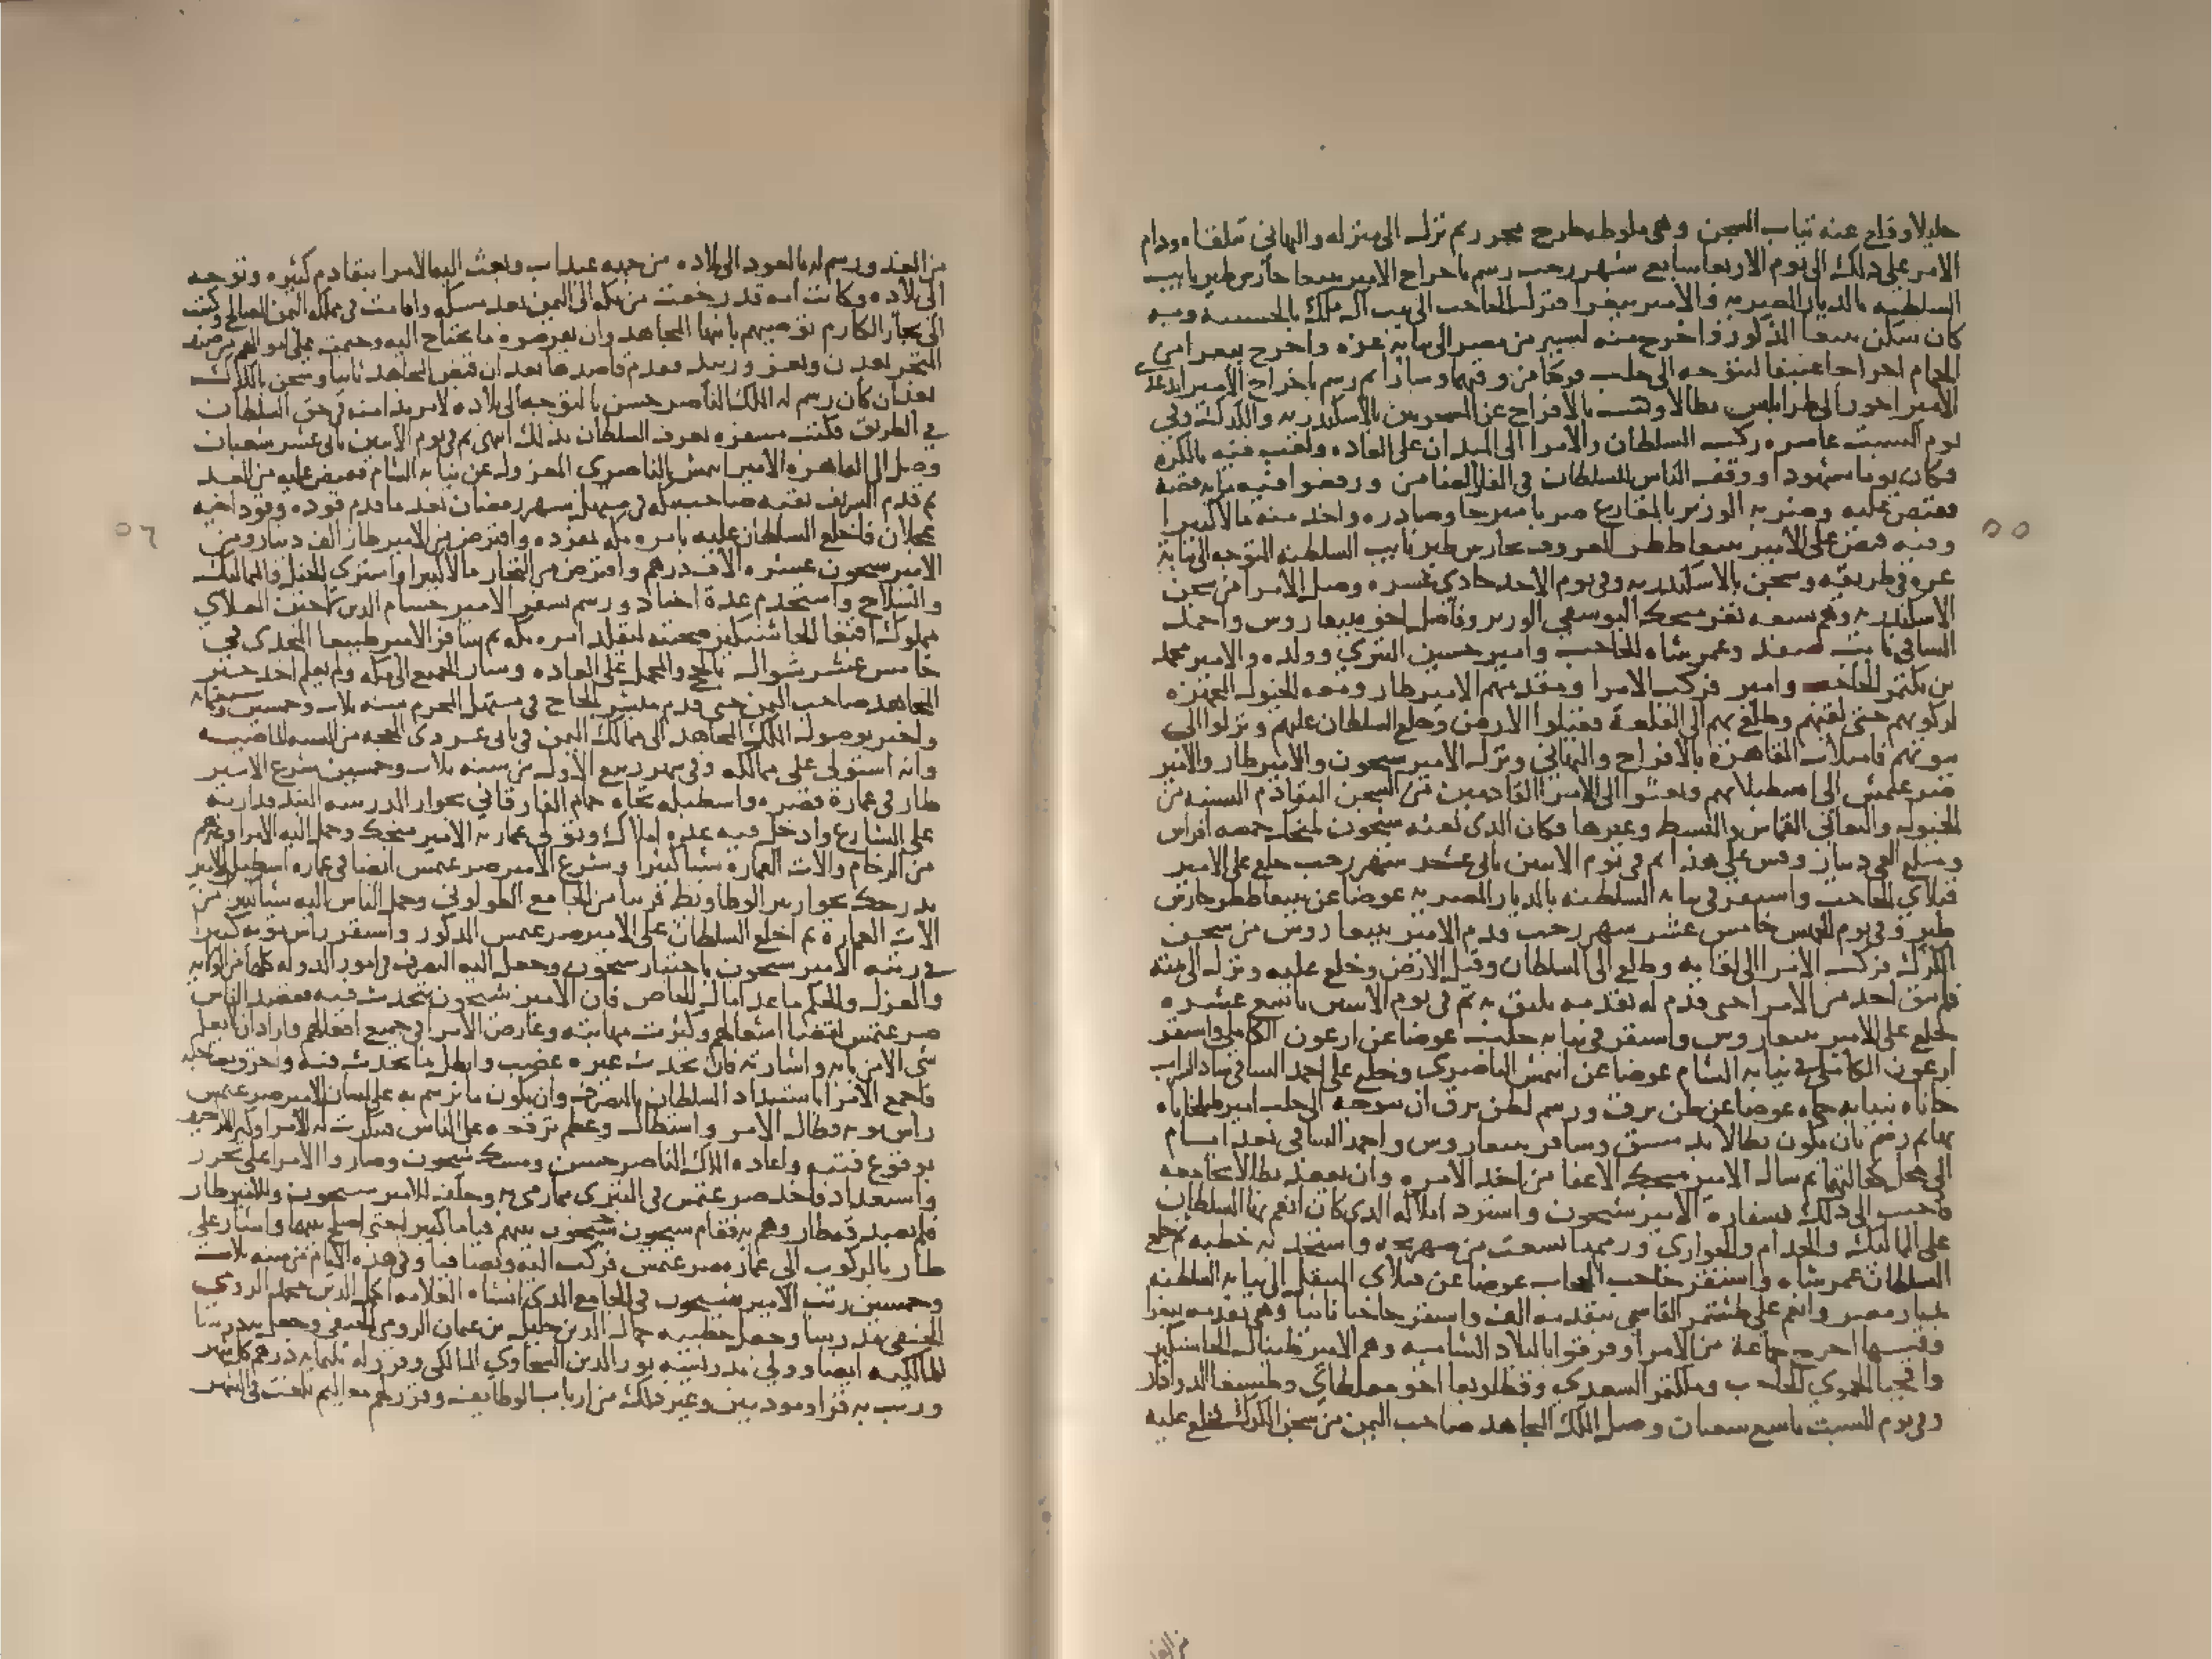 جليلا وقلع عنه ثياب السجن وهي ملوطه طرح محرر ثم نزل الى منزله والتهاني تتلقاه ودام
الامر على ذلك الى يوم الاربعا سابع شهر رجب رسم باخراج الامير بيبغا حارس طير نايب
السلطنه بالديار المصريه والامير بيغرا فنزل الحاجب الى بيت آل ملك بالحسينيه وبه
كان سكن بيبغا المذكور واخرج منه ليسير من مصر الى نيابه غزه واخرج بيغرا من
الحمام اخراجا عنيفا ليتوجه الى حلب فركبا من وقتهما وسارا ثم رسم باخراج الامير ايدغدي
الامير اخور الى طرابلس بطالا وكتب بالافراج عن المسجونين بالاسكندريه والكرك وفي
يوم السبت عاشره ركب السلطان والامرا الى الميدان على العاده ولعب فيه بالكره
فكان يوما مشهودا ووقف الناس للسلطان في الفار الضامن ورفعوا فيه مايه قصه
فقبض عليه وضربه الوزير بالمقارع ضربا مبرحا وصادره واخذ منه مالا كثيرا
وفيه قبض على الامير بيبغا ططر المعروف بحارس طير نايب السلطنه المتوجه الى نيابة
غزه في طريقه وسجن بالاسكندريه وفي يوم الاحد حادي عشره وصل الامرا من سجن
الاسكندريه وهم سبعه نفر منجك اليوسفي الوزير وفاضل اخو بيبغا روس واحمد
الساقي نايب صفد وعمر شاه الحاجب وامير حسين التتري وولده والامير محمد
بن بكتمر الحاجب وامير فركب الامرا ومقدمهم الامير طاز ومعه الخيول المجهزه
لركوبهم حتى لقيهم وطلع بهم الى القلعة فقبلوا الارض وخلع السلطان عليهم ونزلوا الى
بيوتهم فامتلات القاهرة بالافراح والتهاني ونزل الامير شيخون والامير طاز والامير
صرغتمش الى اسطبلاتهم وبعثوا الى الامرا القادمين من السجن التقادم السنيه من
الخيول والتعابي القماش والبسط وغيرها فكان الذي بعثه شيخون لمنجك خمسه افراس
ومبلغ الفي دينار وقس على هذا ثم في يوم الاثنين ثاني عشر شهر رجب خلع على الامير
قبلاي الحاجب واستقر في نيابه السلطنه بالديار المصريه عوضا عن بيبغا ططر حارس
طير وفي يوم الخميس خامس عشر شهر رجب قدم الامير بيبغا روس من سجن
الكرك فركب الامرا الى لقايه وطلع الى السلطان وقبل الارض وخلع عليه ونزل الى بيته
فلم يبق احد من الامرا حتى قدم له تقدمه تليق به ثم في يوم الاثنين تاسع عشره
خلع على الامير بيبغا روس واستقر في نيابه حلب عوضا عن ارغون الكاملي واستقر
ارغون الكاملي في نيابه الشام عوضا عن ايتمش الناصري وخلع على احمد الساقي شاد الشراب
خاناه بنيابه حماه عوضا عن طنيرق ورسم لطنيرق ان يتوجه الى حلب امير طبلخاناه
بها ثم رسم بان يكون بطالا بدمشق وسافر بيبغا روس واحمد الساقي بعد ايام
الى محل كفالتهما ثم سال الامير منجك الاعفا من اخذ الامره وان يقعد بطالا بجامعه
فاجيب الى ذلك بسفارة الامير شيخون واسترد املاكه الذي كان انعم بها السلطان
على المماليك والخدام والجواري ورمم ما تشعث من صهريجه واستجد به خطبه ثم خلع
السلطان عمر شاه واستقر حاجب الحجاب عوضا عن قبلاي المنتقل الى نيابه السلطنه
بديار مصر وانعم على طشتمر القاسمي بتقدمه الف واستقر حاجبا ثانيا وهي تقدمه بيغرا
وفيها اخرج جماعة من الامرا وفرقوا بالبلاد الشاميه وهم الامير طينال الجاشنكير
واقجبا الحموي الحاجب وملكتمر السعدي وقطلوبغا اخو مغلطاي وطشبغا الدوادار
وفي يوم السبت تاسع شعبان وصل الملك المجاهد صاحب اليمن من سجن الكرك فخلع عليه
من الغد
من الغد ورسم له بالعود الى بلاده من جهه عيذاب وبعث اليه الامرا بتقادم كثيره وتوجه
الى بلاده وكانت امه قد رجعت من مكه الى اليمن بعد مسكه واقامت في مملكه اليمن الصالح وكتبت
الى تجار الكارم توصيهم بابنها المجاهد وان يقرضوه ما يحتاج اليه وختمت على اموالهم من صنف
المتجر بعدن وتعز وزبيد فقدم قاصدها بعد ان قبض المجاهد ثانيا وسجن بالكرك
بعد ان كان رسم له الملك الناصر حسن بالتوجه الى بلاده لامر بدا منه في حق السلطان
في الطريق فكتب مسفره يعرف السلطان بذلك انتهى ثم في يوم الاثنين ثاني عشر شعبان
وصل الى القاهره الامير ايتمش الناصري المعزول عن نيابه الشام فقبض عليه من الغد
ثم قدم الشريف ثقبه صاحب مكه في مستهل شهر رمضان بعد ما قدم قوده وقود اخيه
عجلان فاخلع السلطان عليه بامره مكه بمفرده واقترض من الامير طاز الف دينار ومن
الامير شيخون عشره الاف درهم واقترض من التجار مالا كثيرا واشترى الخيل والمماليك
والسلاح واستخدم عدة اجناد ورسم بسفر الامير حسام الدين لاجين العلاي
مملوك اقبغا الجاشنكير صحبته ليقلد امره مكه ثم سافر الامير طيبغا المجدي في
خامس عشر شوال بالحج والمحمل على العاده وسار الجميع الى مكه ولم يعلم احد خبر
المجاهد صاحب اليمن حتى قدم مبشر الحاج في مستهل المحرم سنه ثلاث وخمسين وسبعمايه
واخبر بوصول الملك المجاهد الى ممالك اليمن في ثاني عشر ذي الحجه من السنه الماضيه
وانه استولى على ممالكه وفي شهر ربيع الاول من سنه ثلاث وخمسين شرع الامير
طاز في عمارة قصره واسطبله تجاه حمام الفارقاني بجوار المدرسه البندقداريه
على الشارع وادخل فيه عده املاك وتولى عمارته الامير منجك وحمل اليه الامرا وغيرهم
من الرخام والات العماره شيئا كثيرا وشرع الامير صرغتمش ايضا في عماره اسطبل الامير
بدرجك بجوار بير الوطاويط قريبا من الجامع الطولوني وحمل الناس اليه شيا كثير من
الات العمارة ثم اخلع السلطان على الامير صرغتمش المذكور واستقر راس نوبه كبير
في رتبه الامير شيخون باختيار شيخون وجعل اليه التصرف في امور الدوله كلها من الولايه
والعزل والحكم ما عدا مال الخاص فان الامير شيخون يتحدث فيه فقصد الناس
صرغتمش لقضا اشغالهم وكثرت مهابته وعارض الامرا في جميع افعالهم واراد ان لا يعمل
شي الا من بابه واشارته فان تحدث غيره غضب وابطل ما تحدث فيه واخرق بصاحبه
فاجمع الامرا باستبداد السلطان بالتصرف وان يكون ما يرسم به على لسان الامير صرغتمش
راس نوبه فطال الامر واستطال وعظم ترفعه على الناس فتنكرت له الامرا وكثر الارجيف
بوقوع فتنه واعاده الملك الناصر حسن ومسك شيخون وصاروا الامرا على تحرز
واستعداد فاخذ صرغتمش في التبري مما رمي به وحلف للامير شيخون وللامير طاز
فلم يصدقه طاز وهم به فقام شيخون بينهم قياما كبيرا حتى اصلح بينهما واشار على
طاز بالركوب الى عماره صرغتمش فركب اليه وتصافيا وفي هذه الايام من سنه ثلاث
وخمسين رتب الامير شيخون في الجامع الذي انشاه العلامه اكمل الدين محمد الرومي
الحنفي مدرسا وجعل خطيبه جمال الدين خليل بن عثمان الرومي الحنفي وجعل به درسا
للمالكيه ايضا وولي تدريسه نور الدين السخاوي المالكي وقرر له ثلثمايه درهم كل شهر
ورتب به قرا ومودنين وغير ذلك من ارباب الوظايف وقرر لهم معاليم بلغت في الشهر
٥٥
٥٦